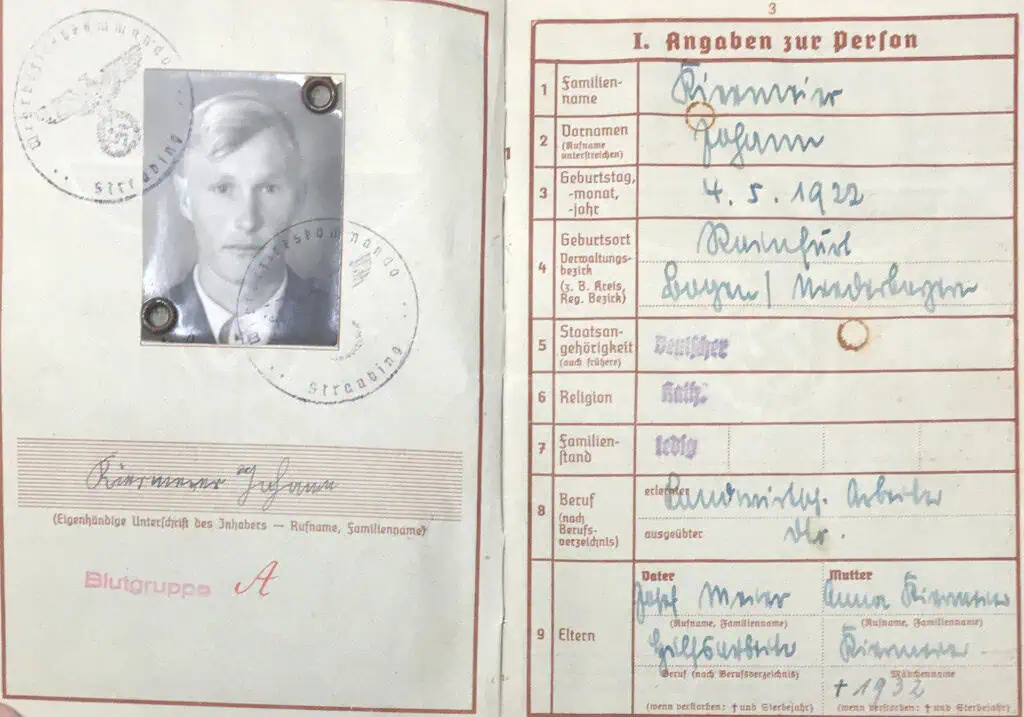 Wehrbezirkskommando
Straubing
Wehrbezirkskommando
Straubing
Kiermeier Johann
(Eigenhändige Unterschrift des Inhabers — Rufname, Familienname)
Blutgruppe A
3
I. Angaben zur Person
1 Familien-
name
Kiermeier
2 Vornamen
(Rufname
unterstreichen)
Johann
3 Geburtstag,
-monat,
-jahr
4. 5. 1922
4 Geburtsort
Verwaltungs-
bezirk
(z. B. Kreis,
Reg. Bezirk)
Bogen / Niederbayern
5 Staatsan-
gehörigkeit
(auch frühere)
Deutscher
6 Religion
Kath.
7 Familien-
stand
ledig
8 Beruf
(nach
Berufs-
verzeichnis)
erlernter Landwirtsch. Arbeiter
ausgeübter
9 Eltern
Vater
Josef Meier
(Rufname, Familienname)
Hilfsarbeiter
Beruf (nach Berufsverzeichnis)
(wenn verstorben: † und Sterbejahr)
Mutter
Anna Kiermeier
(Rufname, Familienname)
Kiermeier
Mädchenname
† 1932
(wenn verstorben: † und Sterbejahr)